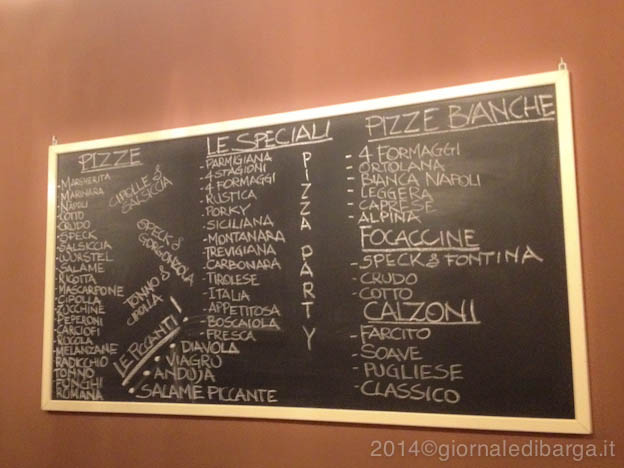 PIZZE
-MARGHERITA
-MARINARA
-NAPOLI
-COTTO
-CRUDO
-SPECK
-SALSICCIA
-WÜRSTEL
-SALAME
-RICOTTA
-MASCARPONE
-CIPOLLA
-ZUCCHINE
-PEPERONI
-CARCIOFI
-RUCOLA
-MELANZANE
-RADICCHIO
-TONNO
-FUNGHI
-ROMANA
CIPOLLE &
SALSICCIA
SPECK &
GORGONZOLA
TONNO &
CIPOLLA
LE PICCANTI!
• DIAVOLA
• VIAGRU
• ANDUJA
• SALAME PICCANTE
LE SPECIALI
-PARMIGIANA
-4 STAGIONI
-4 FORMAGGI
-RUSTICA
-PORKY
-SICILIANA
-MONTANARA
-TREVIGIANA
-CARBONARA
-TIROLESE
-ITALIA
-APPETITOSA
-BOSCAIOLA
-FRESCA
PIZZA PARTY
PIZZE BIANCHE
- 4 FORMAGGI
- ORTOLANA
- BIANCA NAPOLI
- LEGGERA
- CAPRESE
- ALPINA
FOCACCINE
- SPECK & FONTINA
- CRUDO
- COTTO
CALZONI
- FARCITO
- SOAVE
- PUGLIESE
- CLASSICO
2014©giornaledibarga.it